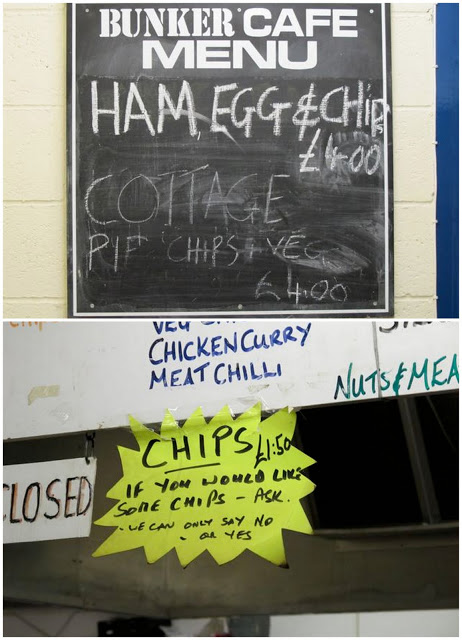 BUNKER CAFE
MENU
HAM, EGG & CHIPS
£4.00
COTTAGE
PIE CHIPS + VEG
£4.00
CHICKEN CURRY
MEAT CHILLI
NUTS & MEA
CLOSED
CHIPS £1.50
IF YOU WOULD LIKE
SOME CHIPS - ASK.
- WE CAN ONLY SAY NO
- OR YES